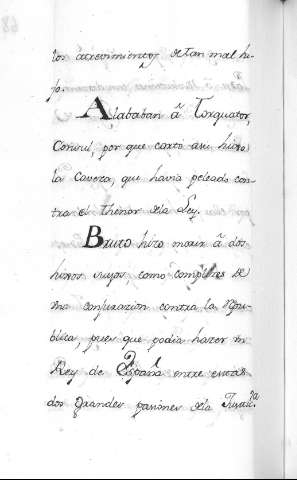 los atrevimientos de tan mal hi-
jo.
Alababan â Torquator,
Consul, por que cortò a su hixo
la Caveza, que havia peleado con-
tra el thenor de la Ley.
Bruto hizo morir â dos
hixos suyos, como complices de
una conjurazion contra la Repu-
blica, pues que podia hazer un
Rey de España entre estas
dos grandes pasiones de la Justiz.ª